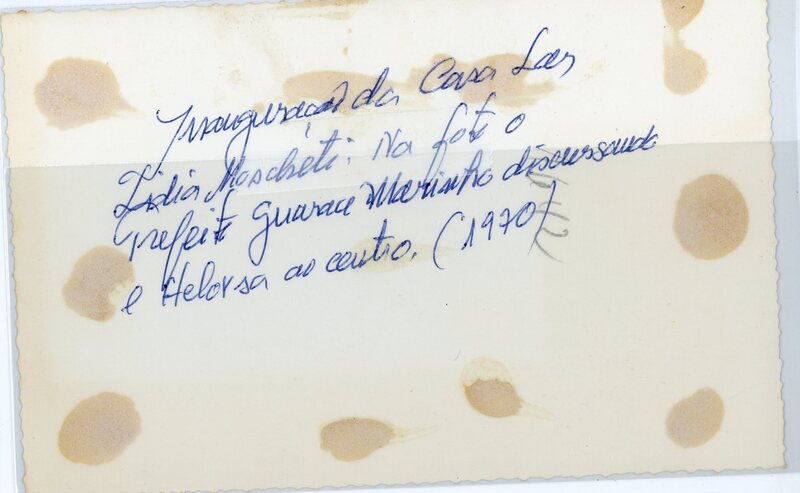 Inauguração da Casa Lar
Lidia Moscheti. Na foto o
Prefeito Guaraci Marinho discursando
e Heloisa ao centro. (1970)